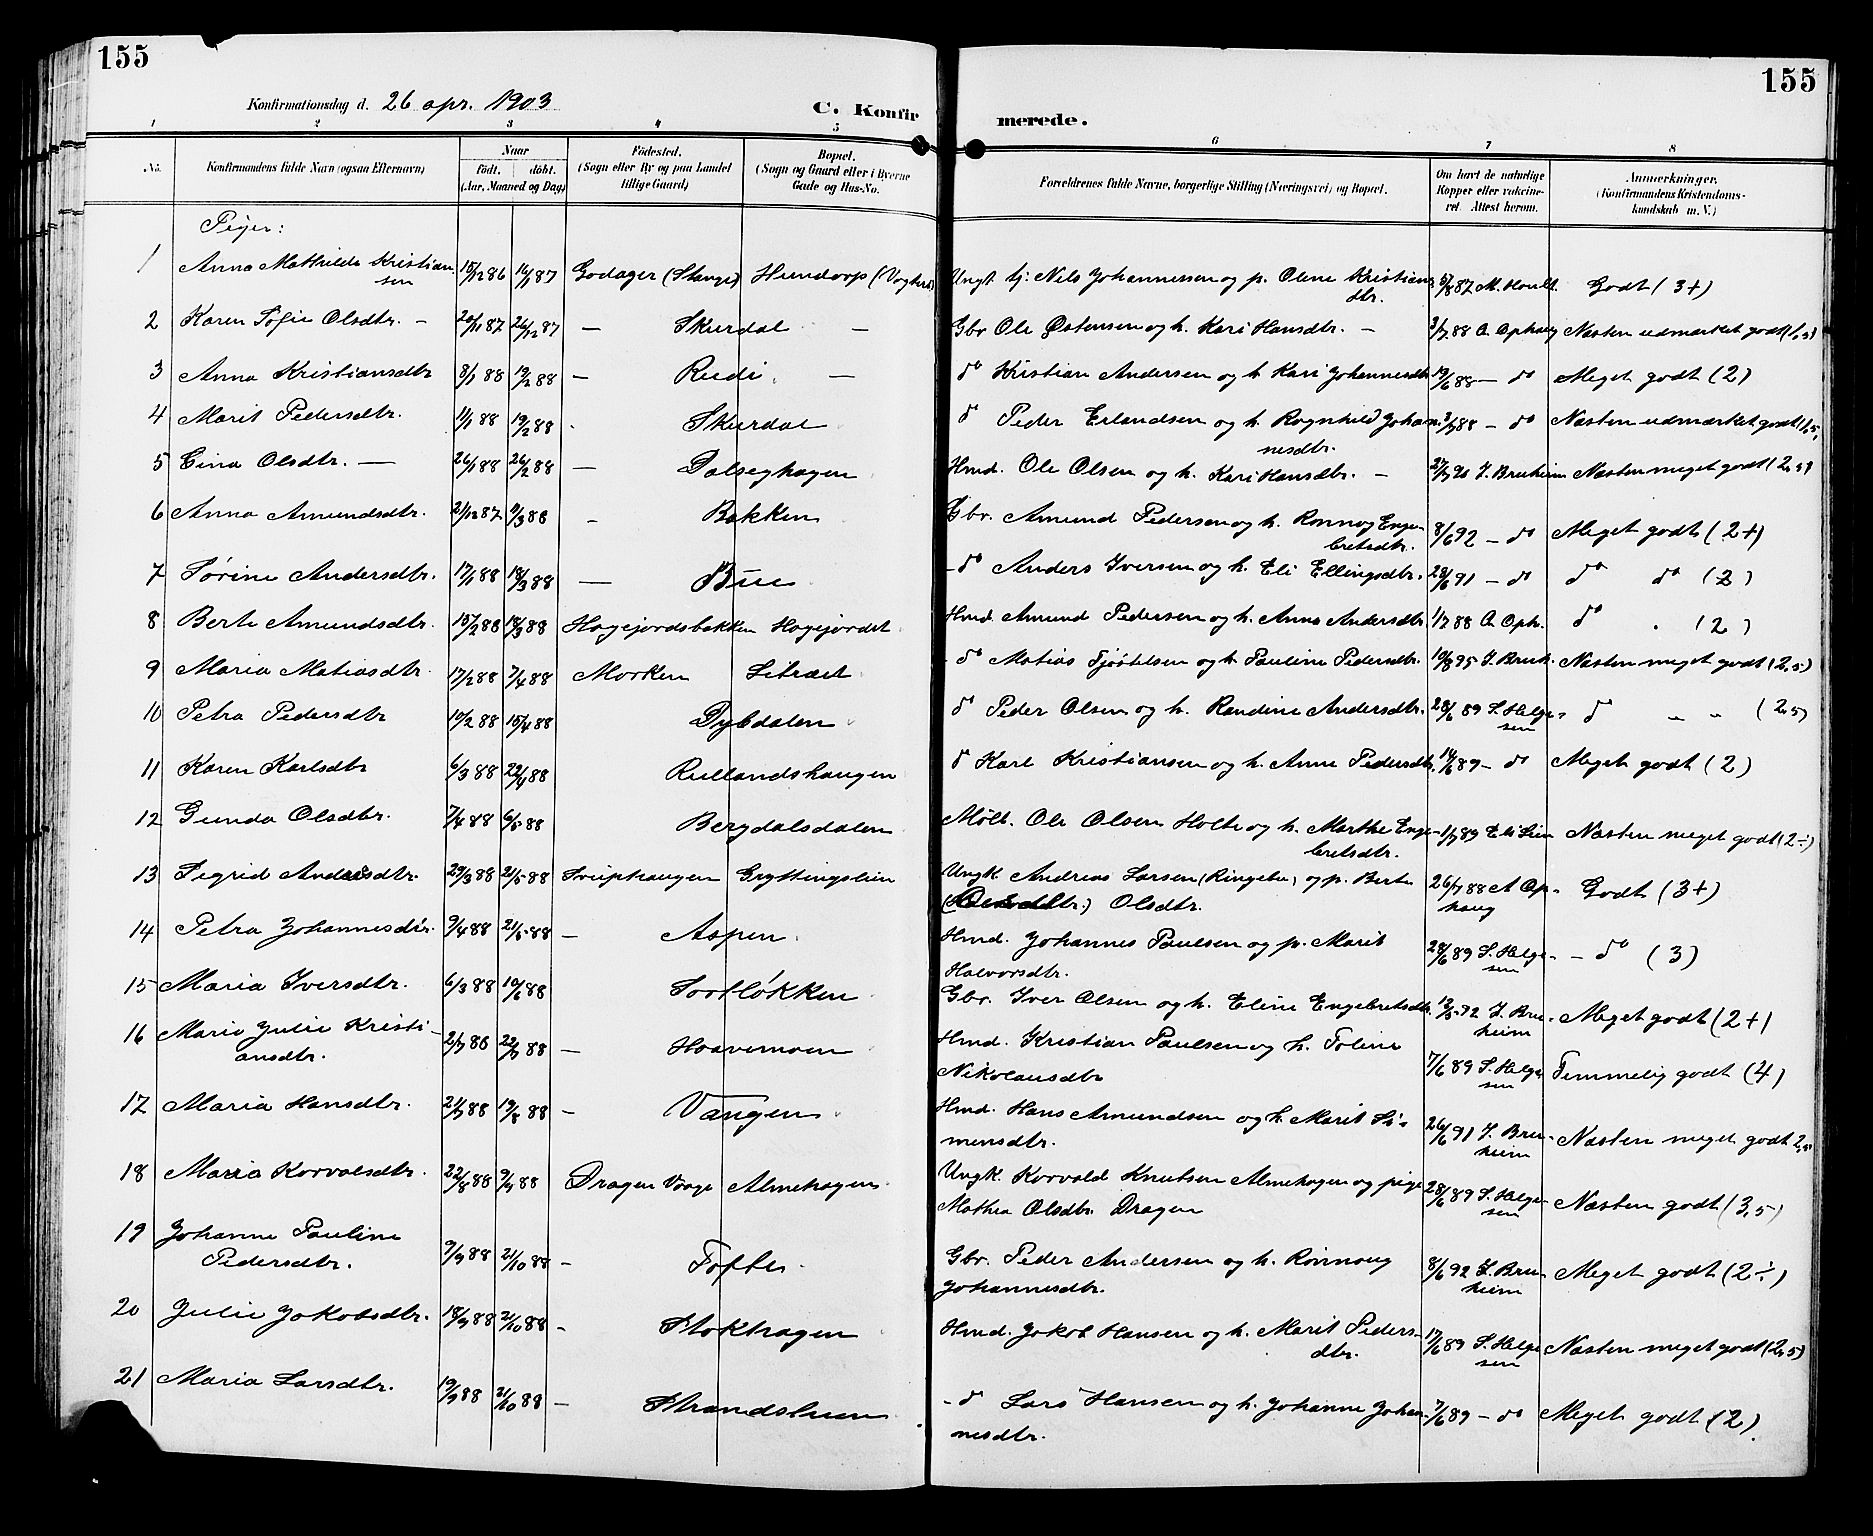 155
155
Konfirmationsdag d. 26 apr. 1903
C. Konfir
merede.
1 2 3 4 5 6 7 8
No. Konfirmandens fulde Navn (ogsaa Efternavn) Naar født. døbt. (Aar, Maaned og Dag) Fødested. (Sogn eller By og paa Landet tillige Gaard) Bopæl. (Sogn og Gaard eller i Byerne Gade og Hus-No. Forældrenes fulde Navne, borgerlige Stilling (Næringsvei) og Bopæl. Om havt de naturlige Kopper eller vakcineret. Attest herom. Anmerkninger. (Konfirmandens Kristendomskundskab m. V.)
Piger:
1 Anna Mathilde Kristiansen 15/12 86 16/1 87 Godager (Stange) Hundorp Ungk. Nils Johannessen og p. Oline Kristiansdtr. 87 Godt (3+)
2 Karen Sofie Olsdtr. – 20/11 87 26/12 87 – Skurdal – Gbr Ole Østensen og h. Kari Hansdtr. – 88 A. Ophaug Næsten udmærket godt (1,5)
3 Anna Kristiansdtr 8/1 88 19/2 88 – Rudi – do Kristian Andersen og h. Kari Johannesdtr 19/6 88 – do Meget godt (2)
4 Marit Pedersdtr. 11/1 88 19/2 88 Skurdal do Peder Erlandsen og h. Ragnhild Johannesdtr. 88 – do Næsten udmærket godt (1,5)
5 Eina Olsdtr. – 26/1 88 26/2 88 – Dalseghagen Hmd. Ole Olsen og h. Kari Hansdtr. – 90 J. Bruheim Næsten meget godt (2,5)
6 Anna Amundsdtr. 21/12 87 11/3 88 – Bakken Gbr. Amund Pedersen og h. Rønnog Engebretsdtr. 8/6 92 – do Meget godt (2+)
7 Sørine Andersdtr. 17/1 88 18/3 88 – Bue – do Anders Iversen og h. Eli Ellingsdtr. 23/6 91 – do do do (2)
8 Berte Amundsdtr. 15/2 88 18/3 88 Hagejordsbakken Hagejordet Hmd. Amund Pedersen og h. Anne Andersdtr 88 A. Oph. do (2)
9 Maria Matiasdtr. 17/2 88 7/4 88 Morken Litræet – do Matias Tjøstelsen og h. Pauline Pedersdtr. 10/8 95 J. Bruh. Næsten meget godt (2,5)
10 Petra Pedersdtr 10/2 88 15/4 88 Dybdalen do Peder Olsen og h. Randine Andersdtr. 28/6 89 S. Helgesen do „ „ (2,5)
11 Karen Karlsdtr 6/3 88 22/4 88 Rullandshaugen do Karl Kristiansen og h. Anne Pedersdtr. 14/6 89 – do Meget godt (2)
12 Gunda Olsdtr. 7/4 88 6/5 88 Bergdalsdalen Møll. Ole Olsen Holte og h. Marthe Engebretsdtr. 89 Eli Lien Næsten meget godt (2÷)
13 Sigrid Andersdtr. 29/3 88 21/5 88 Sviphaugen Gryttingslien Ungk. Andreas Larsen (Ringebu) og p. Berte Olsdtr. 26/7 88 A Ophaug Godt (3+)
14 Petra Johannesdtr. 9/4 88 21/5 88 – Aspen Hmd. Johannes Paulsen og p. Marit Halvorsdtr. 28/6 89 S. Helgesen – do (3)
15 Maria Iversdtr. 6/3 88 10/6 88 Sortløkken Gbr. Iver Olsen og h. Eline Engebretsdtr. 12/5 92 J. Bruheim Meget godt (2+)
16 Marie Julie Kristiansdtr. 2/7 88 22/7 88 – Haavemoen Hmd. Kristian Paulsen og h. Toline Nikolausdtr 7/6 89 S. Helgesen Temmelig godt (4)
17 Maria Hansdtr. 21/7 88 19/8 88 – Vangen Hmd. Hans Amundsen og h. Marit Simensdtr. 26/6 91 J. Bruheim Næsten meget godt 2,5
18 Maria Korvalsdtr. 22/8 88 9/9 88 Dragen Vaage Almehagen Ungk. Korvald Knutsen Almehagen og pige Mathea Olsdtr. Dragen 28/6 89 S. Helgesen Næsten godt (3,5)
19 Johanne Pauline Pedersdtr. 9/9 88 21/10 88 – Tofte Gbr. Peder Andersen og h. Rønnoug Johannesdtr. 8/6 92 J. Bruheim Meget godt (2÷)
20 Julie Jakobsdtr. 18/9 88 21/10 88 – Stokhagen Hmd. Jakob Hansen og h. Marit Pedersdtr. 17/6 89 S. Helgesen Næsten meget godt (2,5)
21 Maria Larsdtr. 19/9 88 21/10 88 – Strandsluen – do Lars Hansen og h. Johanne Johannesdtr. 7/6 89 – do Meget godt (2).